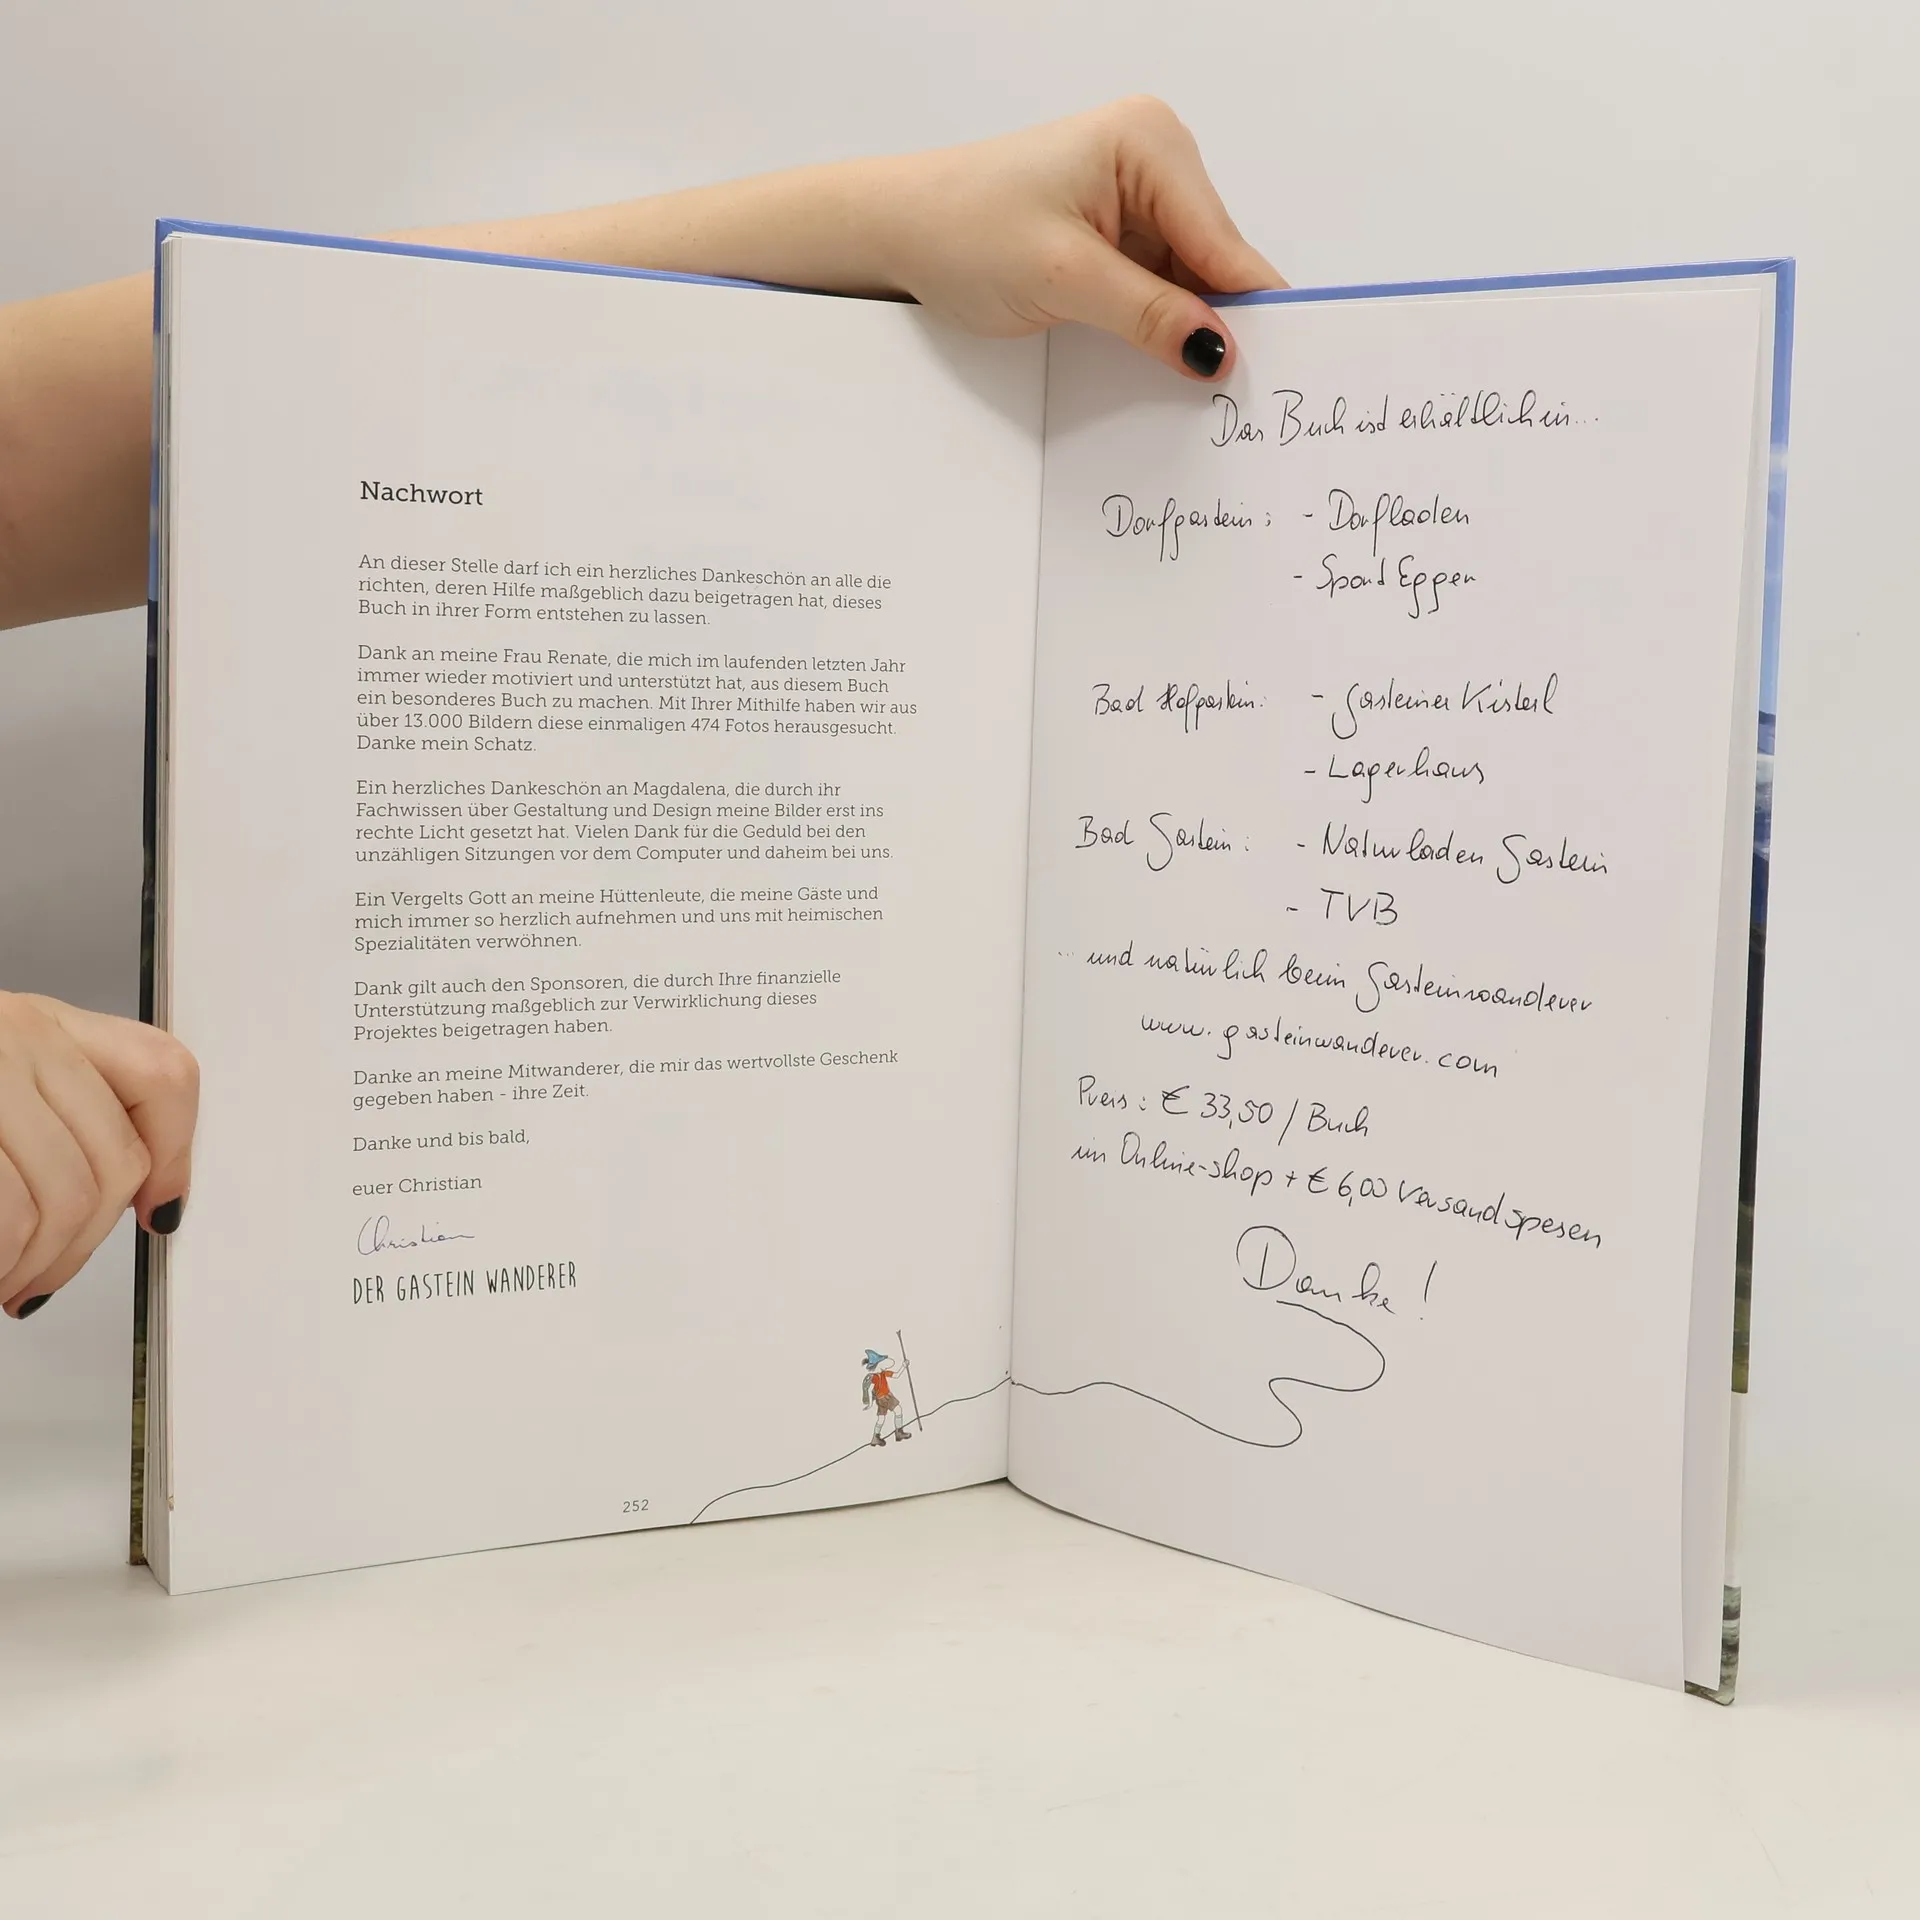 Nachwort
An dieser Stelle darf ich ein herzliches Dankeschön an alle die
richten, deren Hilfe maßgeblich dazu beigetragen hat, dieses
Buch in ihrer Form entstehen zu lassen.
Dank an meine Frau Renate, die mich im laufenden letzten Jahr
immer wieder motiviert und unterstützt hat, aus diesem Buch
ein besonderes Buch zu machen. Mit Ihrer Mithilfe haben wir aus
über 13.000 Bildern diese einmaligen 474 Fotos herausgesucht.
Danke mein Schatz.
Ein herzliches Dankeschön an Magdalena, die durch ihr
Fachwissen über Gestaltung und Design meine Bilder erst ins
rechte Licht gesetzt hat. Vielen Dank für die Geduld bei den
unzähligen Sitzungen vor dem Computer und daheim bei uns.
Ein Vergelts Gott an meine Hüttenleute, die meine Gäste und
mich immer so herzlich aufnehmen und uns mit heimischen
Spezialitäten verwöhnen.
Dank gilt auch den Sponsoren, die durch Ihre finanzielle
Unterstützung maßgeblich zur Verwirklichung dieses
Projektes beigetragen haben.
Danke an meine Mitwanderer, die mir das wertvollste Geschenk
gegeben haben - ihre Zeit.
Danke und bis bald,
euer Christian
Christian
DER GASTEIN WANDERER
252
Das Buch ist erhältlich in...
Dorfgastein: - Dorfladen
- Sport Egger
Bad Hofgastein: - Gasteiner Kisterl
- Lagerhaus
Bad Gastein: - Naturladen Gastein
- TVB
... und natürlich beim Gasteinwanderer
www.gasteinwanderer.com
Preis: € 33,50 / Buch
im Online-shop + € 6,00 Versandspesen
Danke!